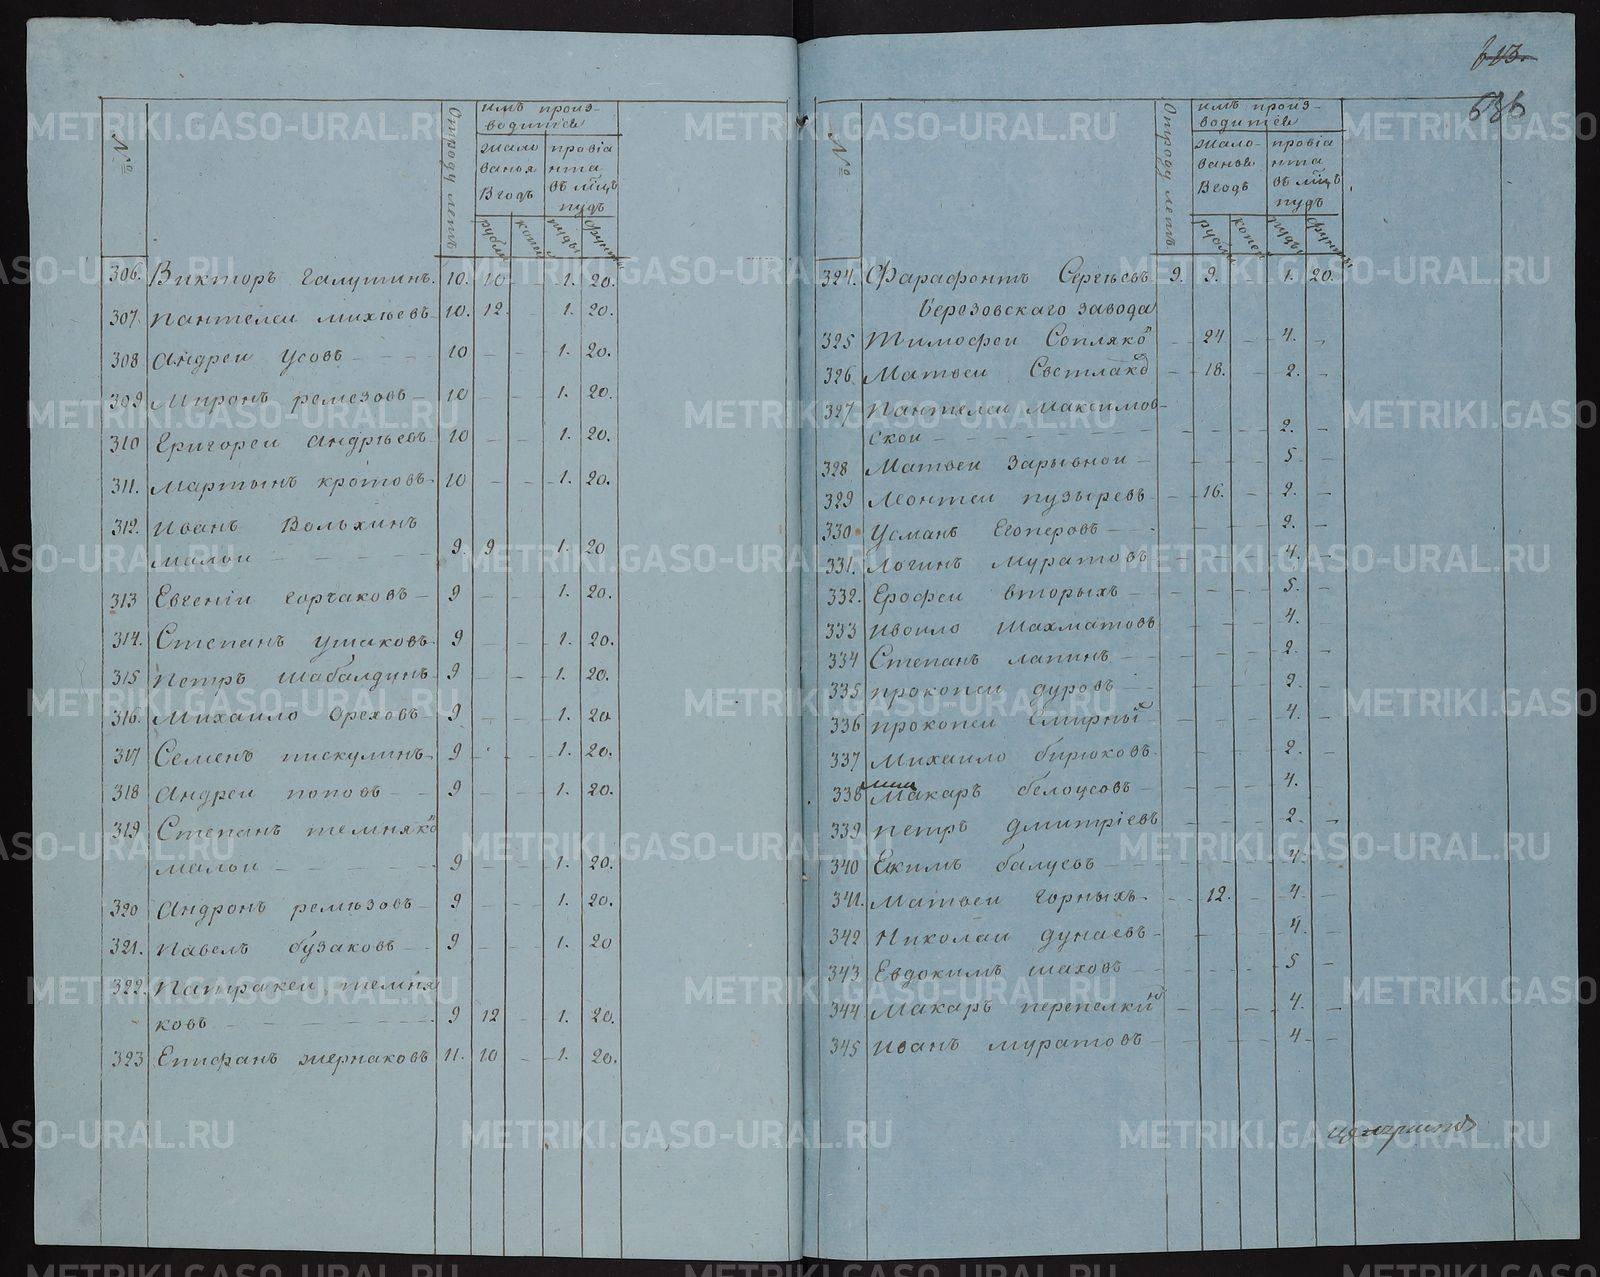 №
Отроду летъ
имъ произ-
водится
жало
ванья
Въ годъ
провіа
нта
въ мцъ
пудъ
рубли
копеи
пуды
фунты
306. Викторъ Галушинъ. 10. 10 1. 20.
307 пантелеи михѣевъ 10. 12. 1. 20.
308 андреи усовъ 10 1. 20.
309 Миронъ ремезовъ 10 1. 20.
310 Григореи андрѣевъ 10 1. 20.
311. мартынъ кротовъ 10 1. 20.
312. иванъ Вольхинъ
малои 9. 9 1. 20
313 Евгеніи горчаковъ 9 1. 20.
314. Степанъ ушаковъ 9 1. 20.
315 петръ шабалдинъ 9 1. 20.
316. михаило ореховъ 9 1. 20
317 Семенъ пискулинъ 9 1. 20.
318 андреи поповъ 9 1. 20.
319 Степанъ темнякô
малои 9 1. 20.
320 андронъ ремѣзовъ 9 1. 20.
321. павелъ бузаковъ 9 1. 20
322. патракеи темня
ковъ 9 12 1. 20.
323 Епифанъ жернаковъ 11. 10 1. 20.
613.
636
№
Отроду летъ
имъ произ-
водится
жало-
ванья
Въ годъ
провіа
нта
въ мцъ
пудъ
рубли
копеи
пуды
фунты
324. Фарафонтъ Сергѣевъ 9. 9. 1. 20.
Березовскаго завода
325 Тимофеи Соплякô 24 4.
326 Матвеи Светлакô 18. 2.
327 пантелеи максимов-
скои 2.
328 Матвеи зарывнои 5
329 леонтеи пузыревъ 16. 2.
330 Усманъ Егоперовъ 2.
331. логинъ муратовъ 4.
332. Ерофеи вторыхъ 5.
333 ивоило шахматовъ 4.
334 Степанъ лапинъ 2.
335 прокопеи дуровъ 2
336 прокопеи Смирный 4.
337 михаило бирюковъ 2.
338 макаръ белоусовъ 4.
339 петръ дмитріевъ 2.
340 Екимъ балуевъ 4.
341. матвеи горныхъ 12. 4.
342 Николаи дунаевъ 4.
343 Евдокимъ шаховъ 5
344 макаръ перепелкинъ 4.
345 иванъ муратовъ 4
METRIKI.GASO-URAL.RU